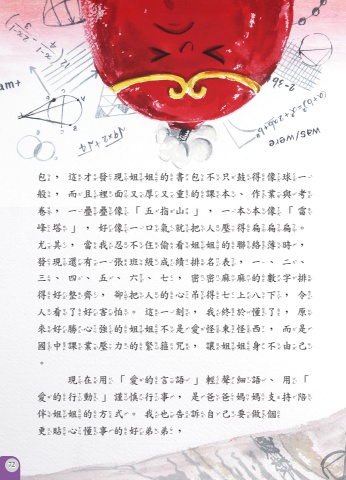 am+
was/were
包，這才發現姐姐的書包不只鼓得像球一
般，而且裡面又厚又重的課本、作業與考
卷，一疊疊像「五指山」，一本本像「雷
峰塔」，好像一口氣就把人壓得扁扁扁。
尤其，當我忍不住偷看姐姐的聯絡簿時，
發現還有一張班級成績排名表，一、二、
三、四、五、六、七，密密麻麻的數字排
得好整齊，卻把人的心吊得七上八下，令
人看了好害怕。這一刻，我終於懂了，原
來好勝心強的姐姐不是愛怪東怪西，而是
國中課業壓力的緊箍咒，讓姐姐身不由己
。
現在用「愛的言語」輕聲細語、用「
愛的行動」謹慎行事，是爸爸媽媽支持陪
伴姐姐的方式。我也告訴自己要做個
更貼心懂事的好弟弟，
72